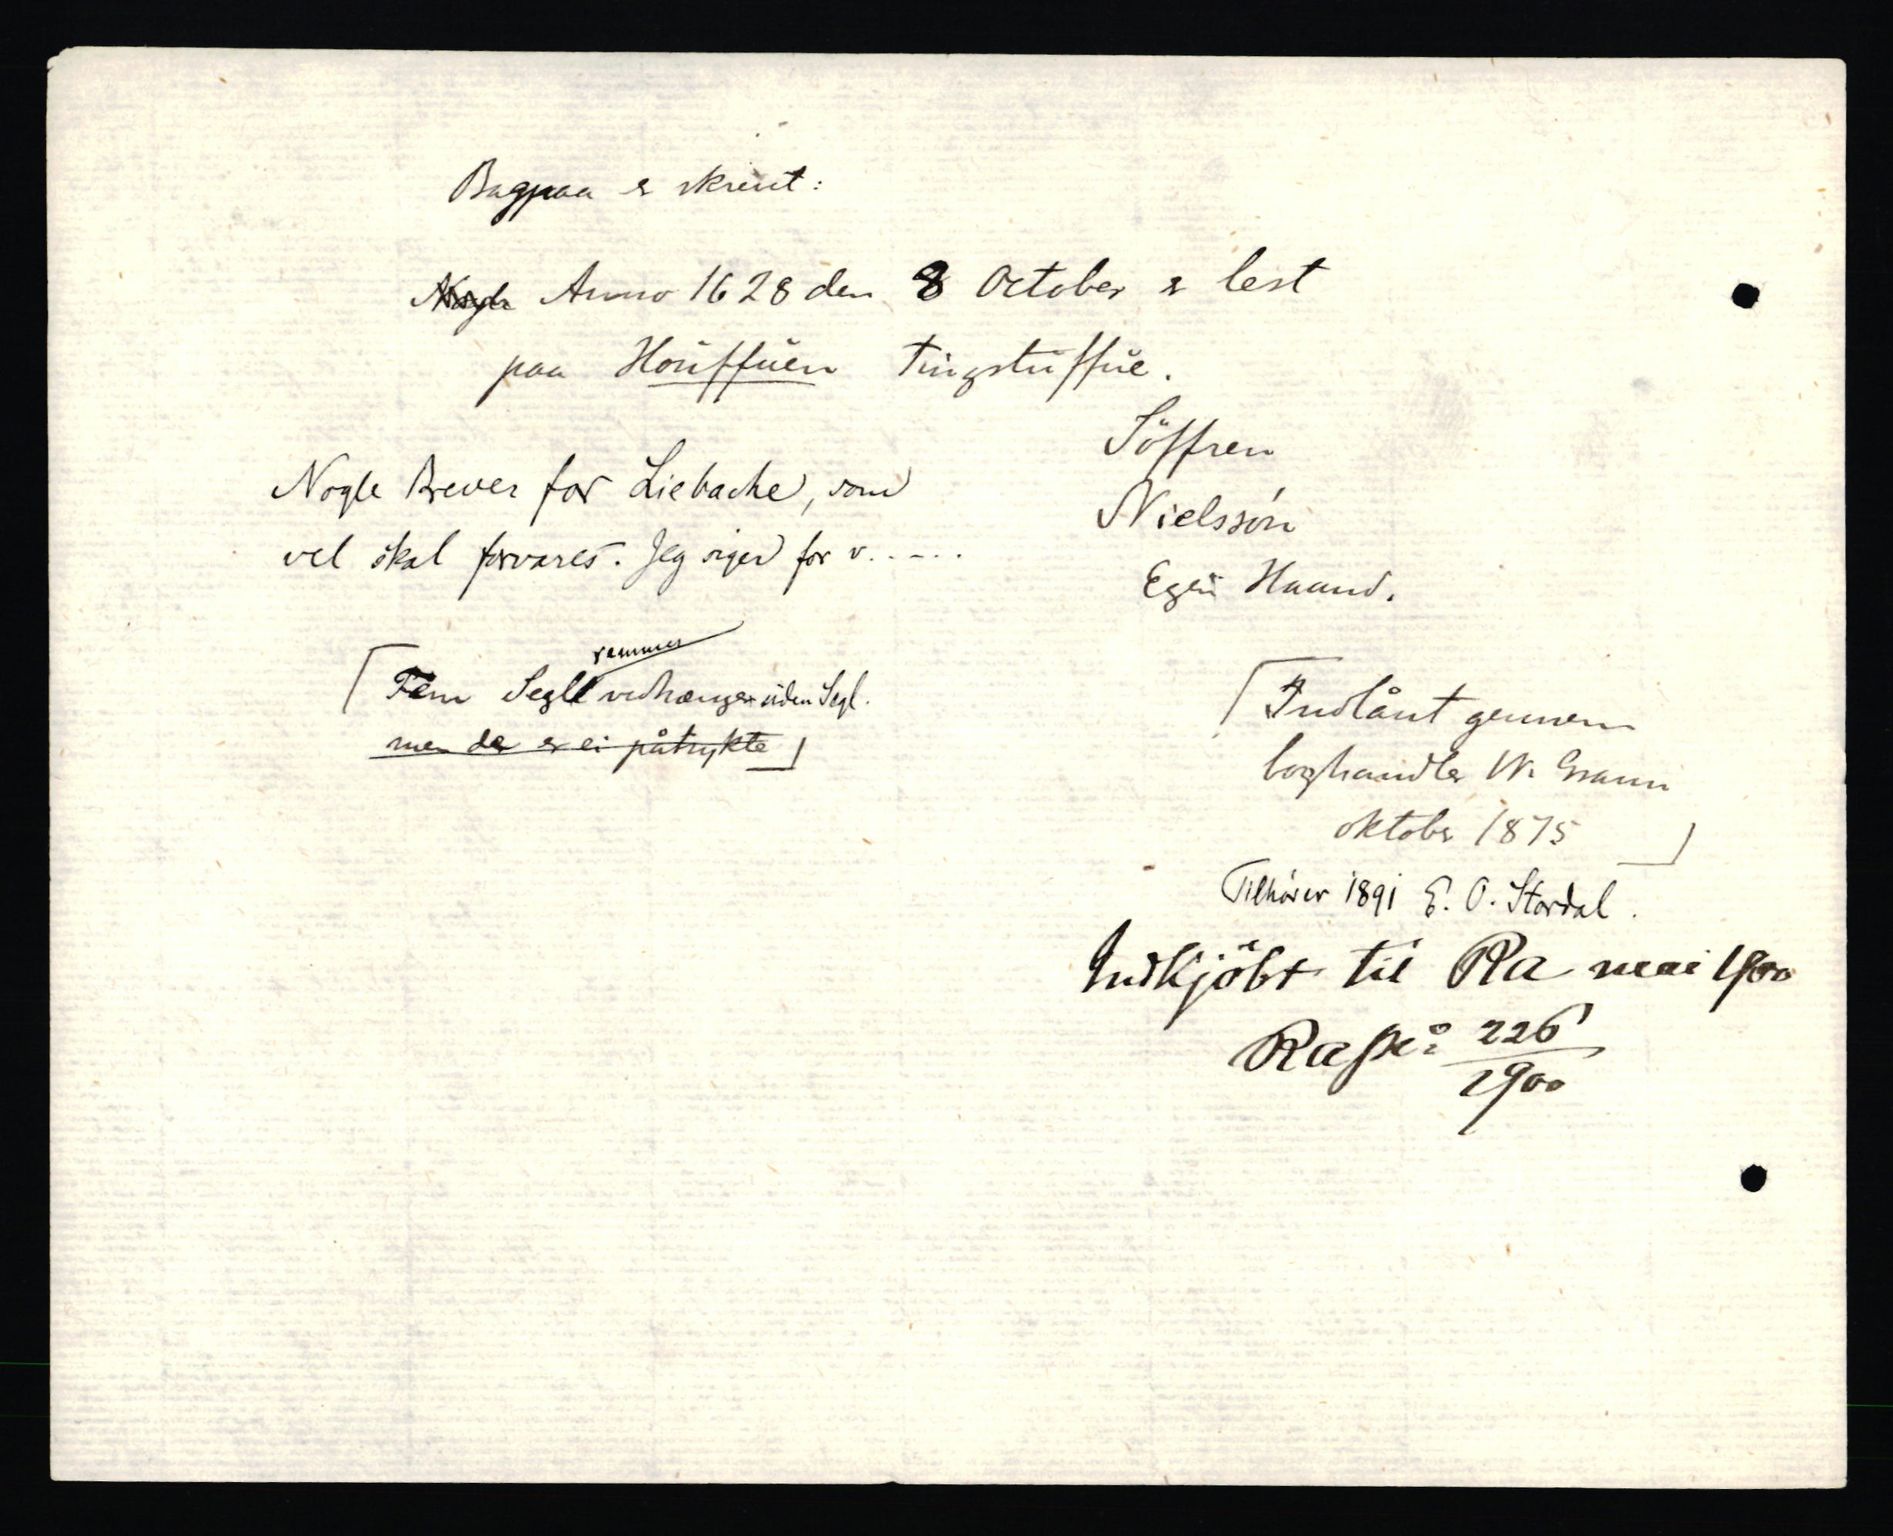 Bagpaa er skreut:
Nogle Anno 1628 den 8 October er lest
paa Houffuen Tingstuffue.
Söffren
Nielssön
Egen Haand.
Nogle Brever for Liebache, som
vel skal forvares. Jeg siger for v.....
[Fem Segl remmer vedhænger uden Segl.
men der er ei påtrykte]
[Indlånt gennem
boghandler W. Gram
oktober 1875]
Tilhører 1891 E. O. Stordal.
Indkjöbt til Ra mai 1900
226
1900